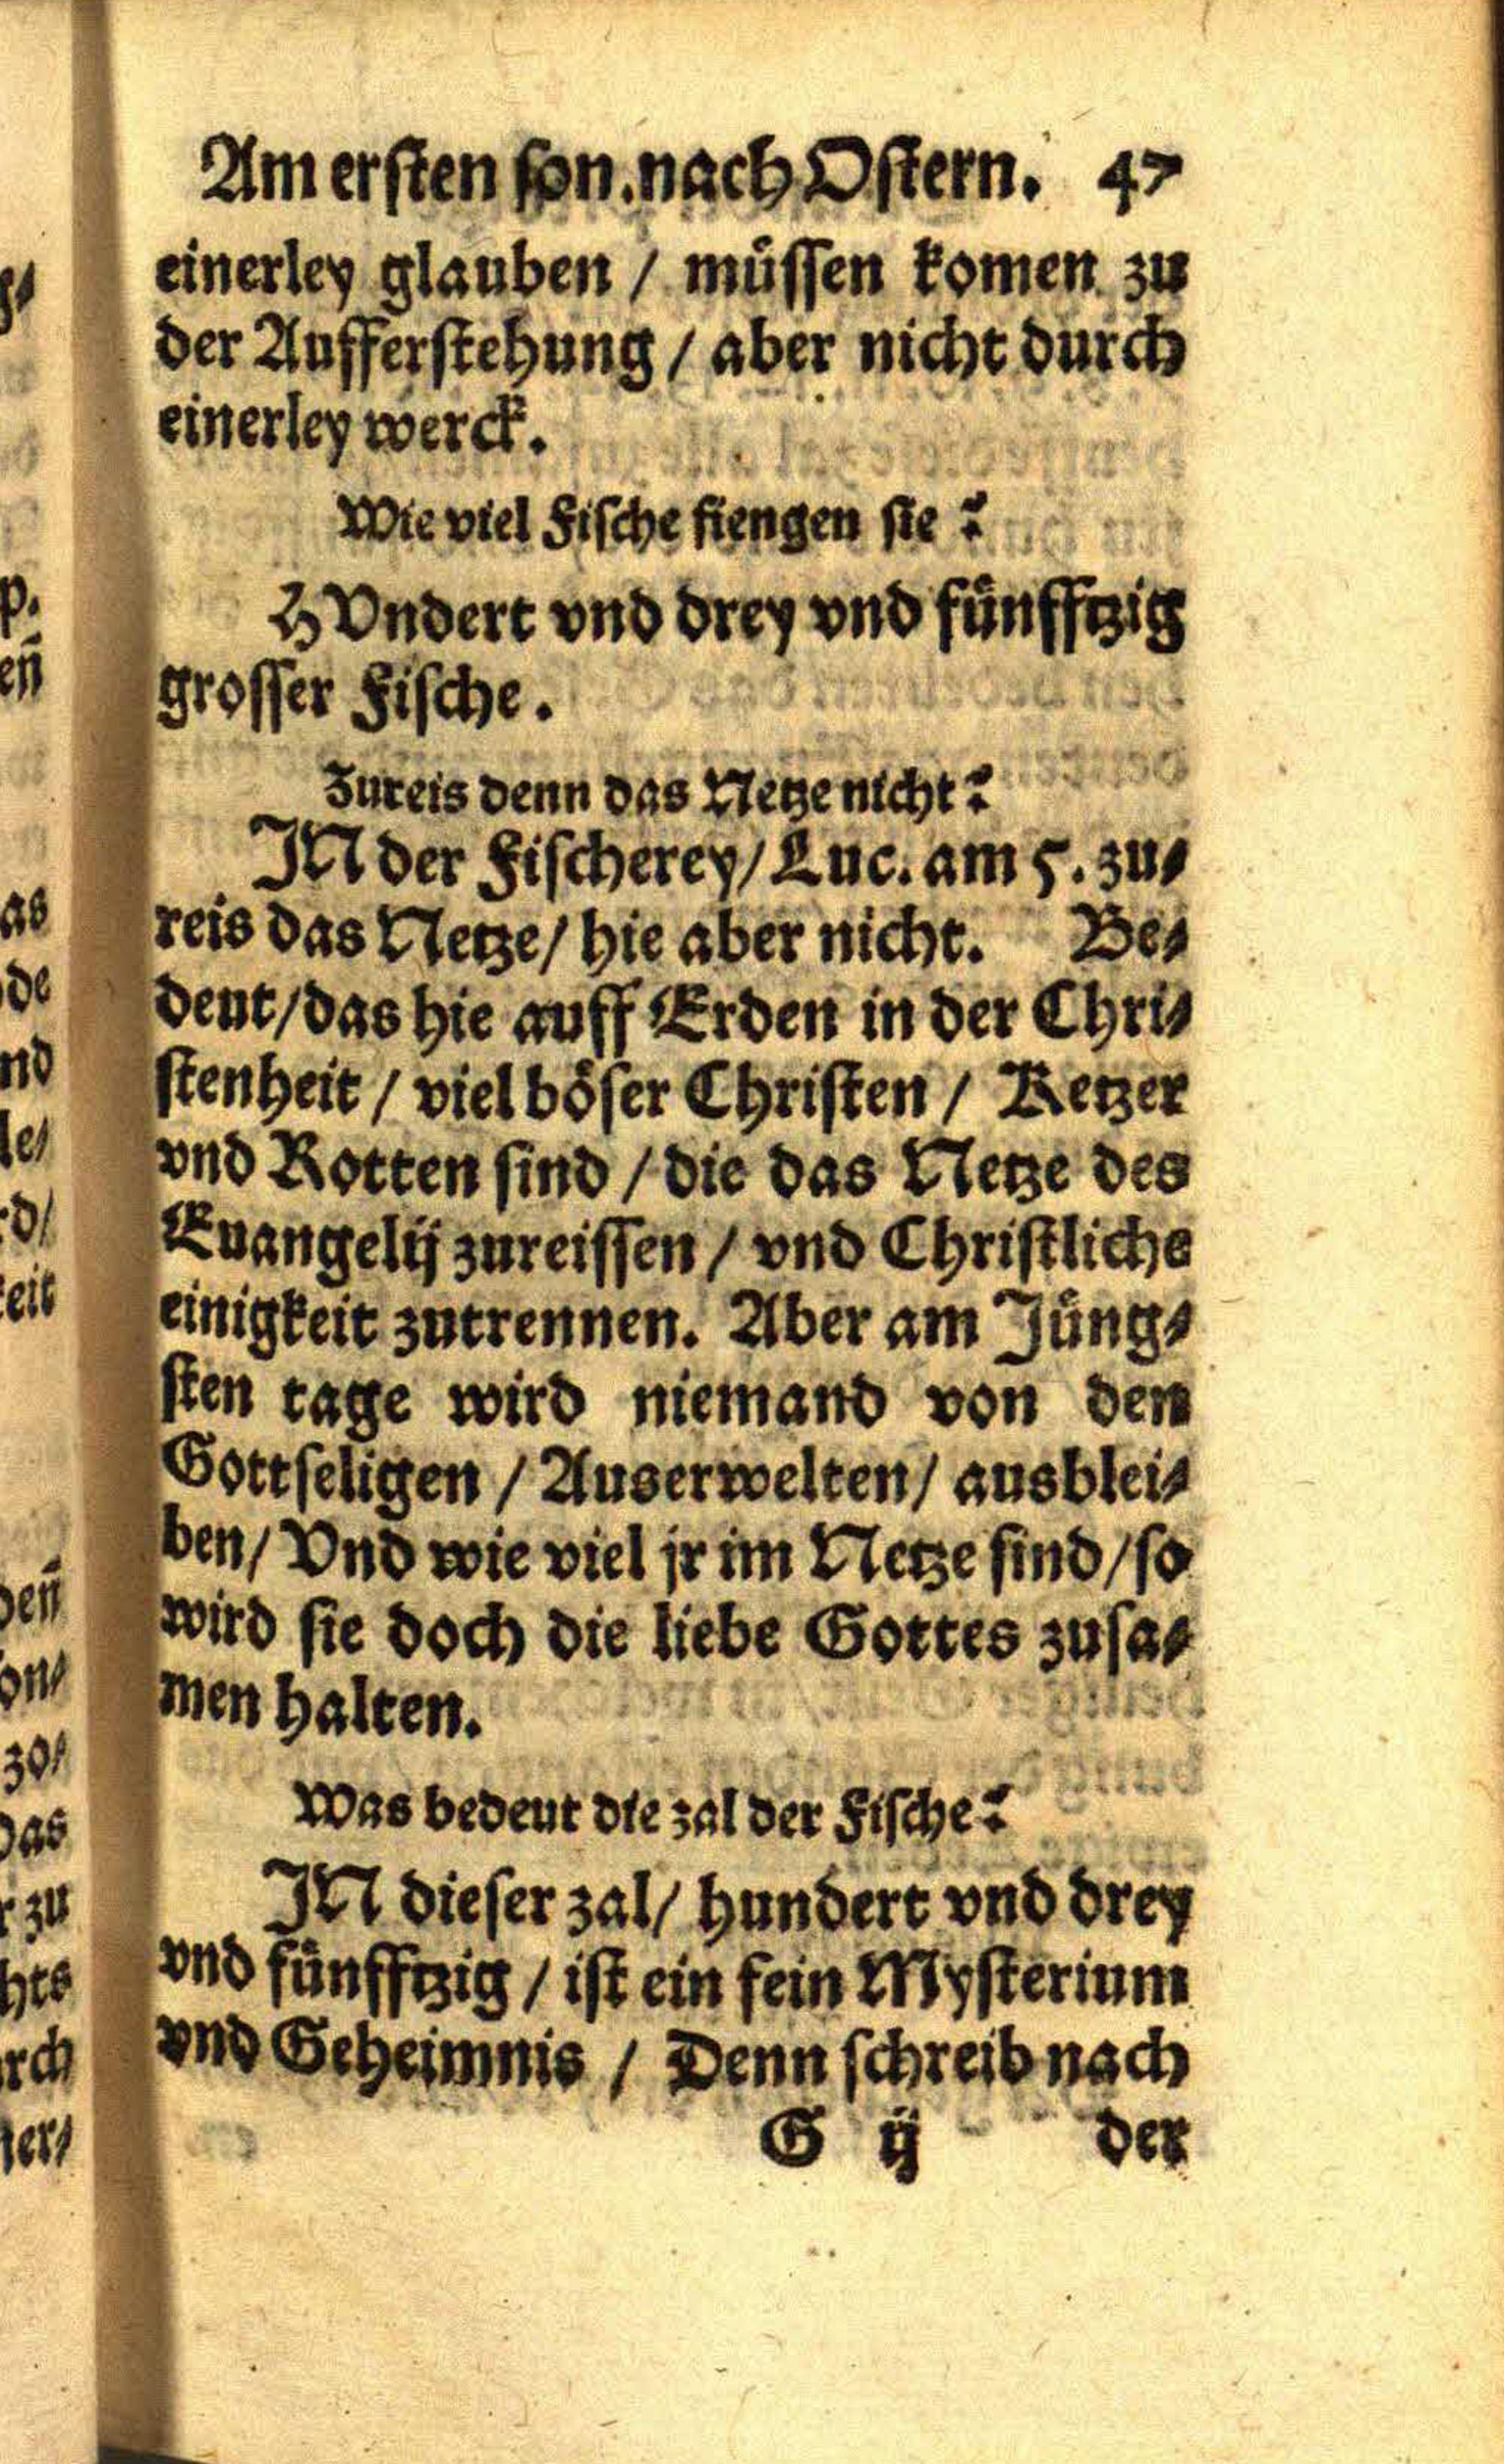 Am ersten son. nach Ostern. 47
einerley glauben / müssen komen zu
der Aufferstehung / aber nicht durch
einerley werck.
Wie viel Fische fiengen sie?
HUndert vnd drey vnd fünfftzig
grosser Fische.
Zureis denn das Netze nicht?
IN der Fischerey / Luc. am 5. zu-
reis das Netze / hie aber nicht. Be-
deut / das hie auff Erden in der Chri-
stenheit / viel böser Christen / Ketzer
vnd Rotten sind / die das Netze des
Euangelij zureissen / vnd Christliche
einigkeit zutrennen. Aber am Jüng-
sten tage wird niemand von den
Gottseligen / Auserwelten / ausblei-
ben / Vnd wie viel jr im Netze sind / so
wird sie doch die liebe Gottes zusa-
men halten.
Was bedeut die zal der Fische?
IN dieser zal / hundert vnd drey
vnd fünfftzig / ist ein fein Mysterium
vnd Geheimnis / Denn schreib nach
G ij der